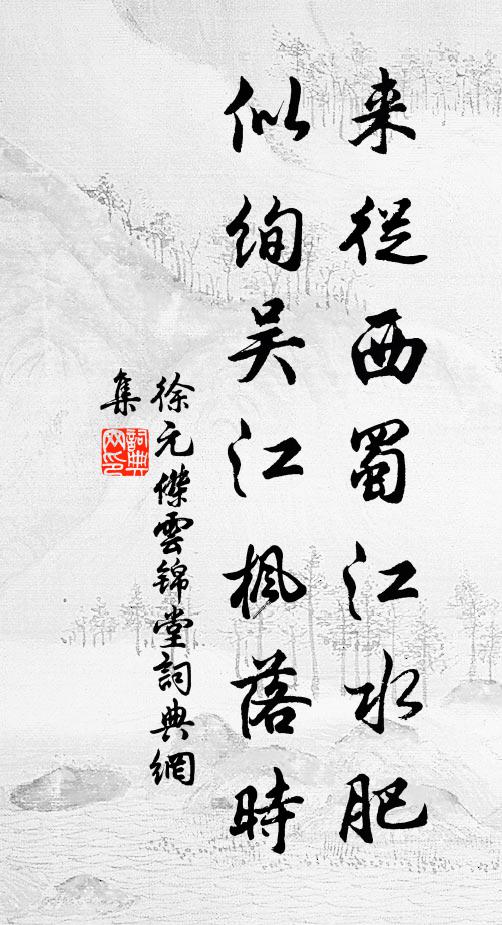 来從西蜀江水肥
似絢吴江楓落時
徐元傑雲锦堂詞典網
集
詞典网印